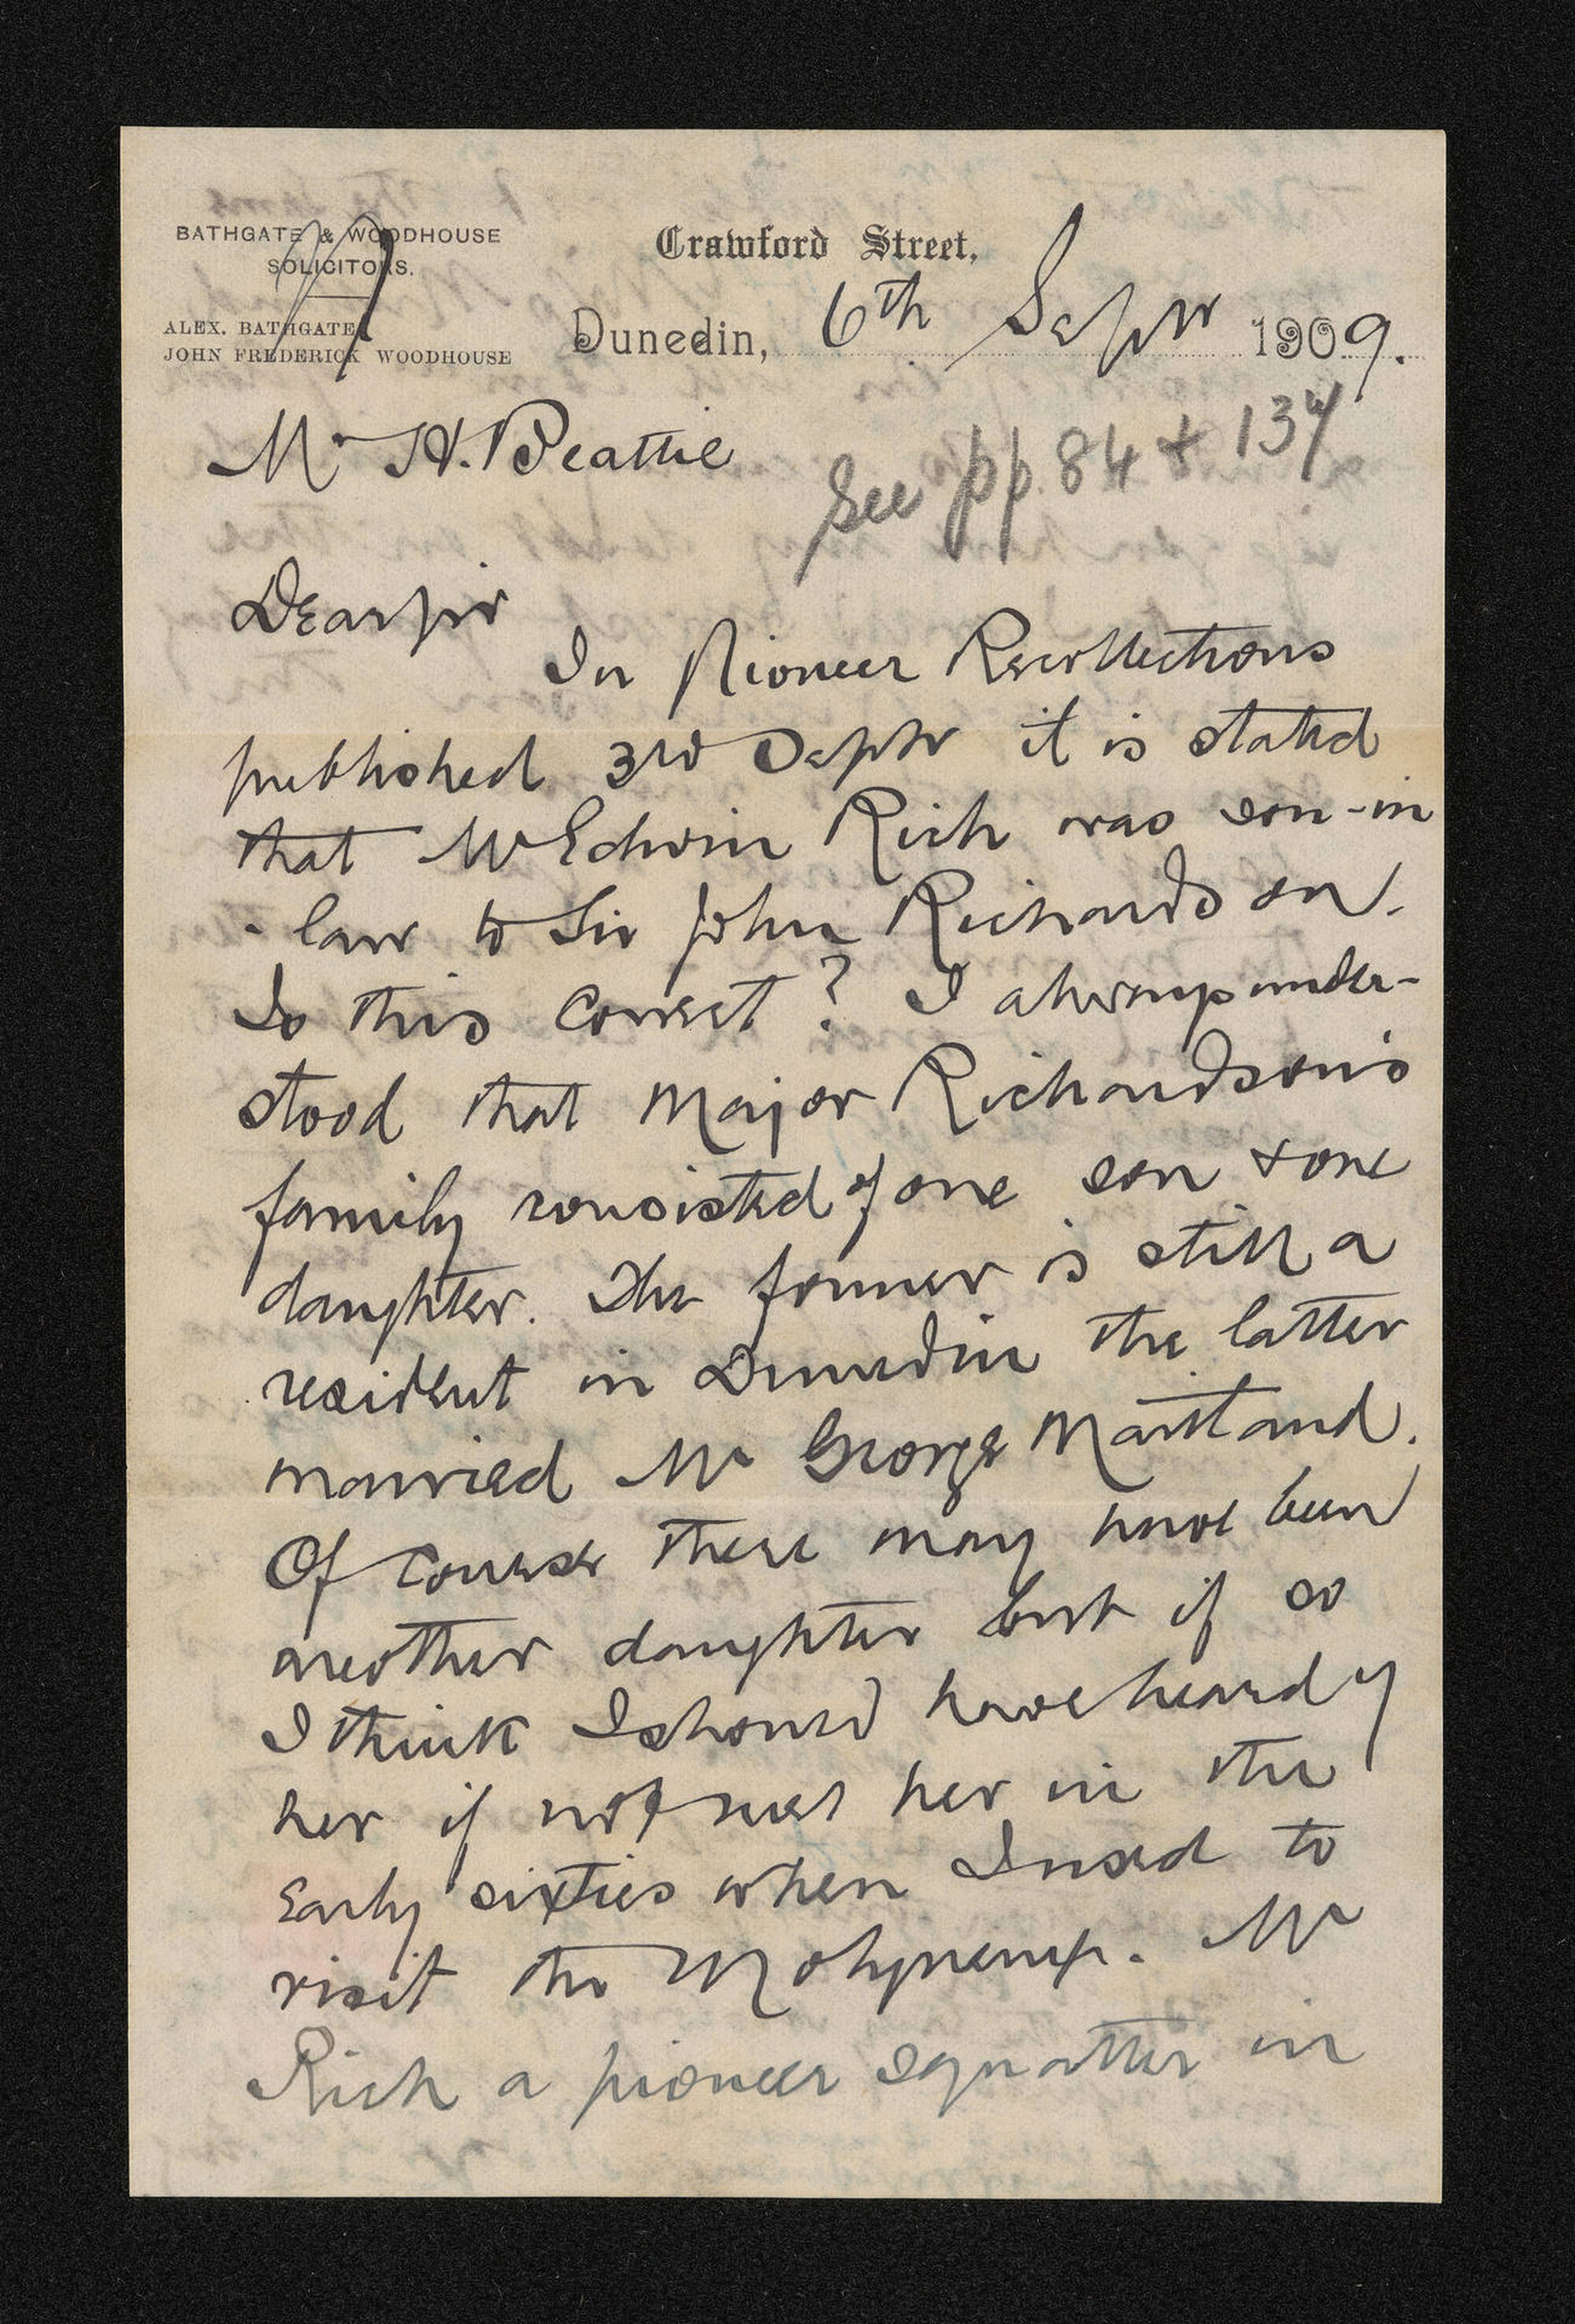 BATHGATE & WOODHOUSE
SOLICITORS.
ALEX. BATHGATE
JOHN FREDERICK WOODHOUSE
Crawford Street,
Dunedin, 6th Septr 1909.
Mr H. Beattie
See pp. 84 & 134
Dear Sir
In Pioneer Recollections
published 3rd Septr it is stated
that Mr Edwin Rich was son-in
-law to Sir John Richardson.
Is this correct? I always under-
stood that Major Richardson's
family consisted of one son & one
daughter. The former is still a
resident in Dunedin the latter
married Mr George Maitland.
Of course there may have been
another daughter but if so
I think I should have heard of
her if not met her in the
early sixties when I used to
visit the Molyneux. Mr
Rich a pioneer squatter in